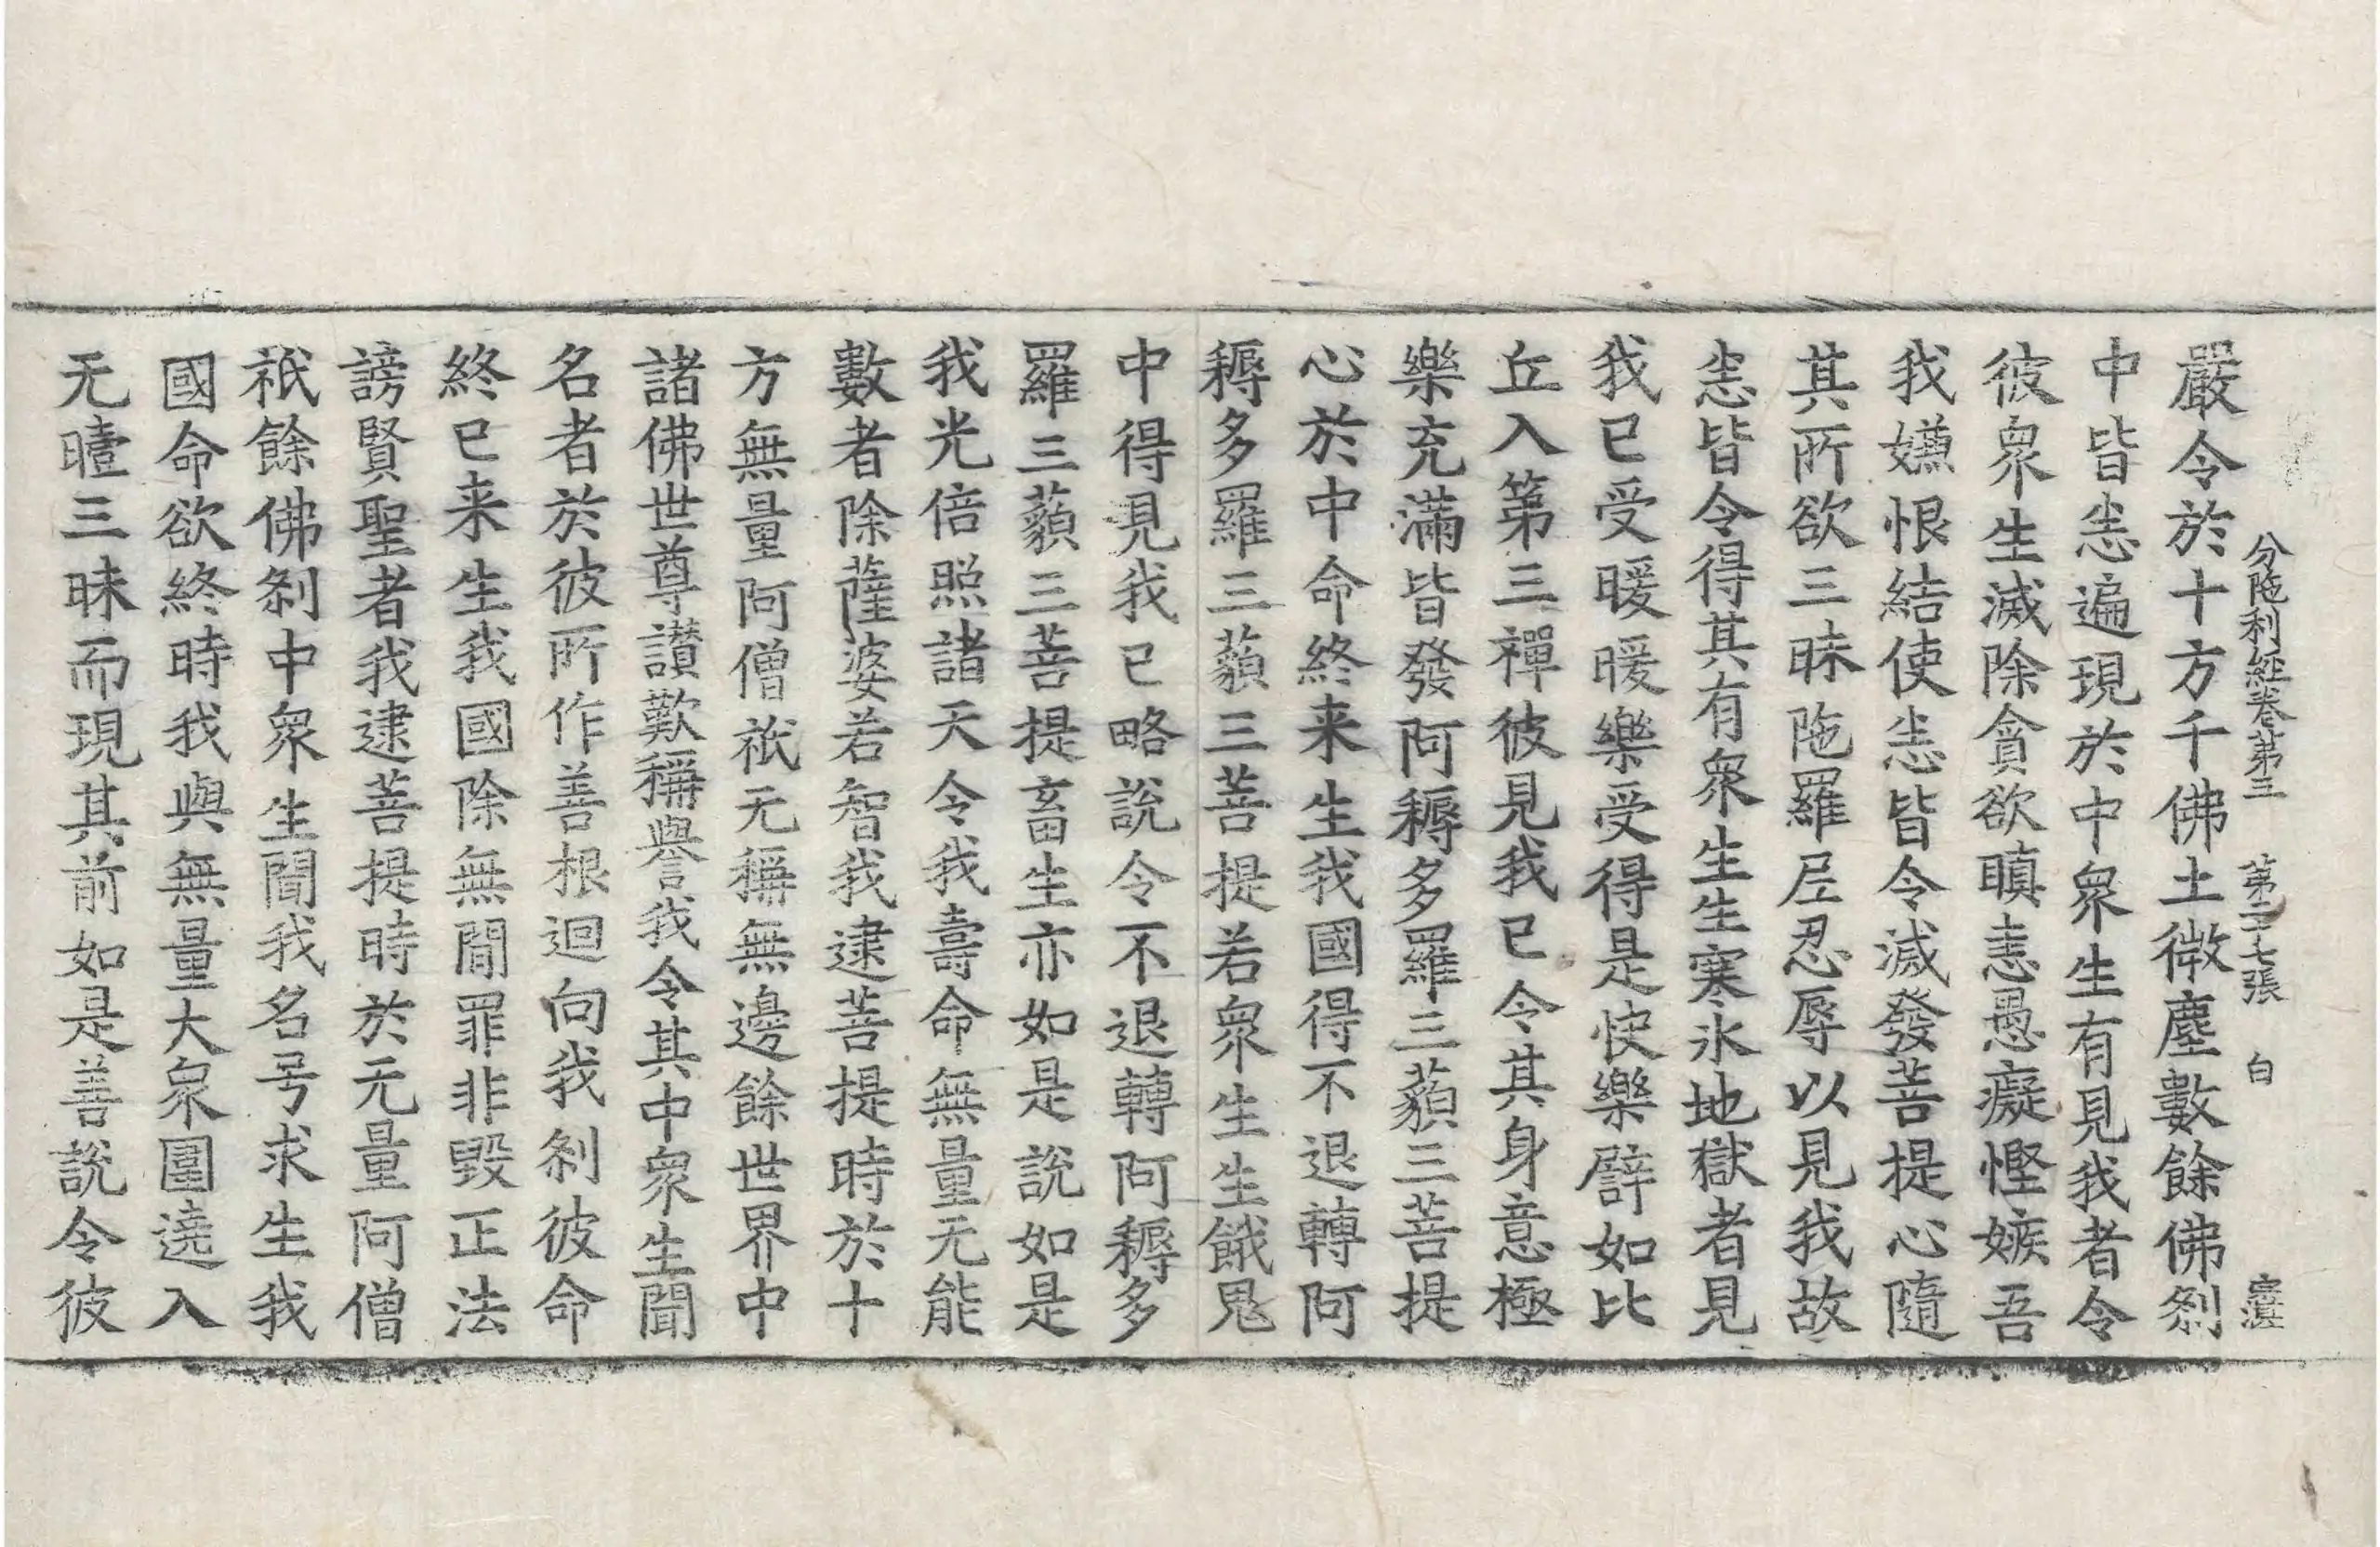 分陁利經卷第三 第二七張 白
嚴令於十方千佛土微塵數餘佛刹
中皆悉遍現於中衆生有見我者令
彼衆生滅除貪欲瞋恚愚癡慳嫉吾
我嫌恨結使悉皆令滅發菩提心隨
其所欲三昧陁羅尼忍辱以見我故
悉皆令得其有衆生生寒氷地獄者見
我已受暖暖樂受得是快樂譬如比
丘入第三禪彼見我已令其身意極
樂充滿皆發阿耨多羅三藐三菩提
心於中命終来生我國得不退轉阿
耨多羅三藐三菩提若衆生生餓鬼
中得見我已略說令不退轉阿耨多
羅三藐三菩提畜生亦如是說如是
我光倍照諸天令我壽命無量无能
數者除薩婆若智我逮菩提時於十
方無量阿僧祇无稱無邊餘世界中
諸佛世尊讃歎稱譽我令其中衆生聞
名者於彼所作善根迴向我刹彼命
終已来生我國除無間罪非毀正法
謗賢聖者我逮菩提時於无量阿僧
祇餘佛刹中衆生聞我名号求生我
國命欲終時我與無量大衆圍遶入
无曀三昧而現其前如是善說令彼